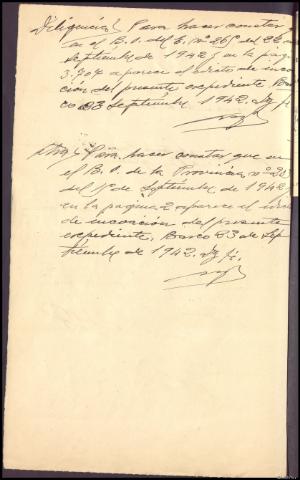 Diligencia/ Para hacer constar
en el B. O. del E. nº 265 del 22
Septiembre de 1942 y en la página
3.704 aparece el edicto de incoa
ción del presente expediente Bar
co 23 Septiembre 1942. doy fé.
Otra/ Para hacer constar que en
el B. O. de la Provincia nº 20
del 1º de Septiembre de 1942
en la pagina 2 aparece el edicto
de incoación del presente
expediente. Barco 23 de Sep
tiembre de 1942. doy fé.